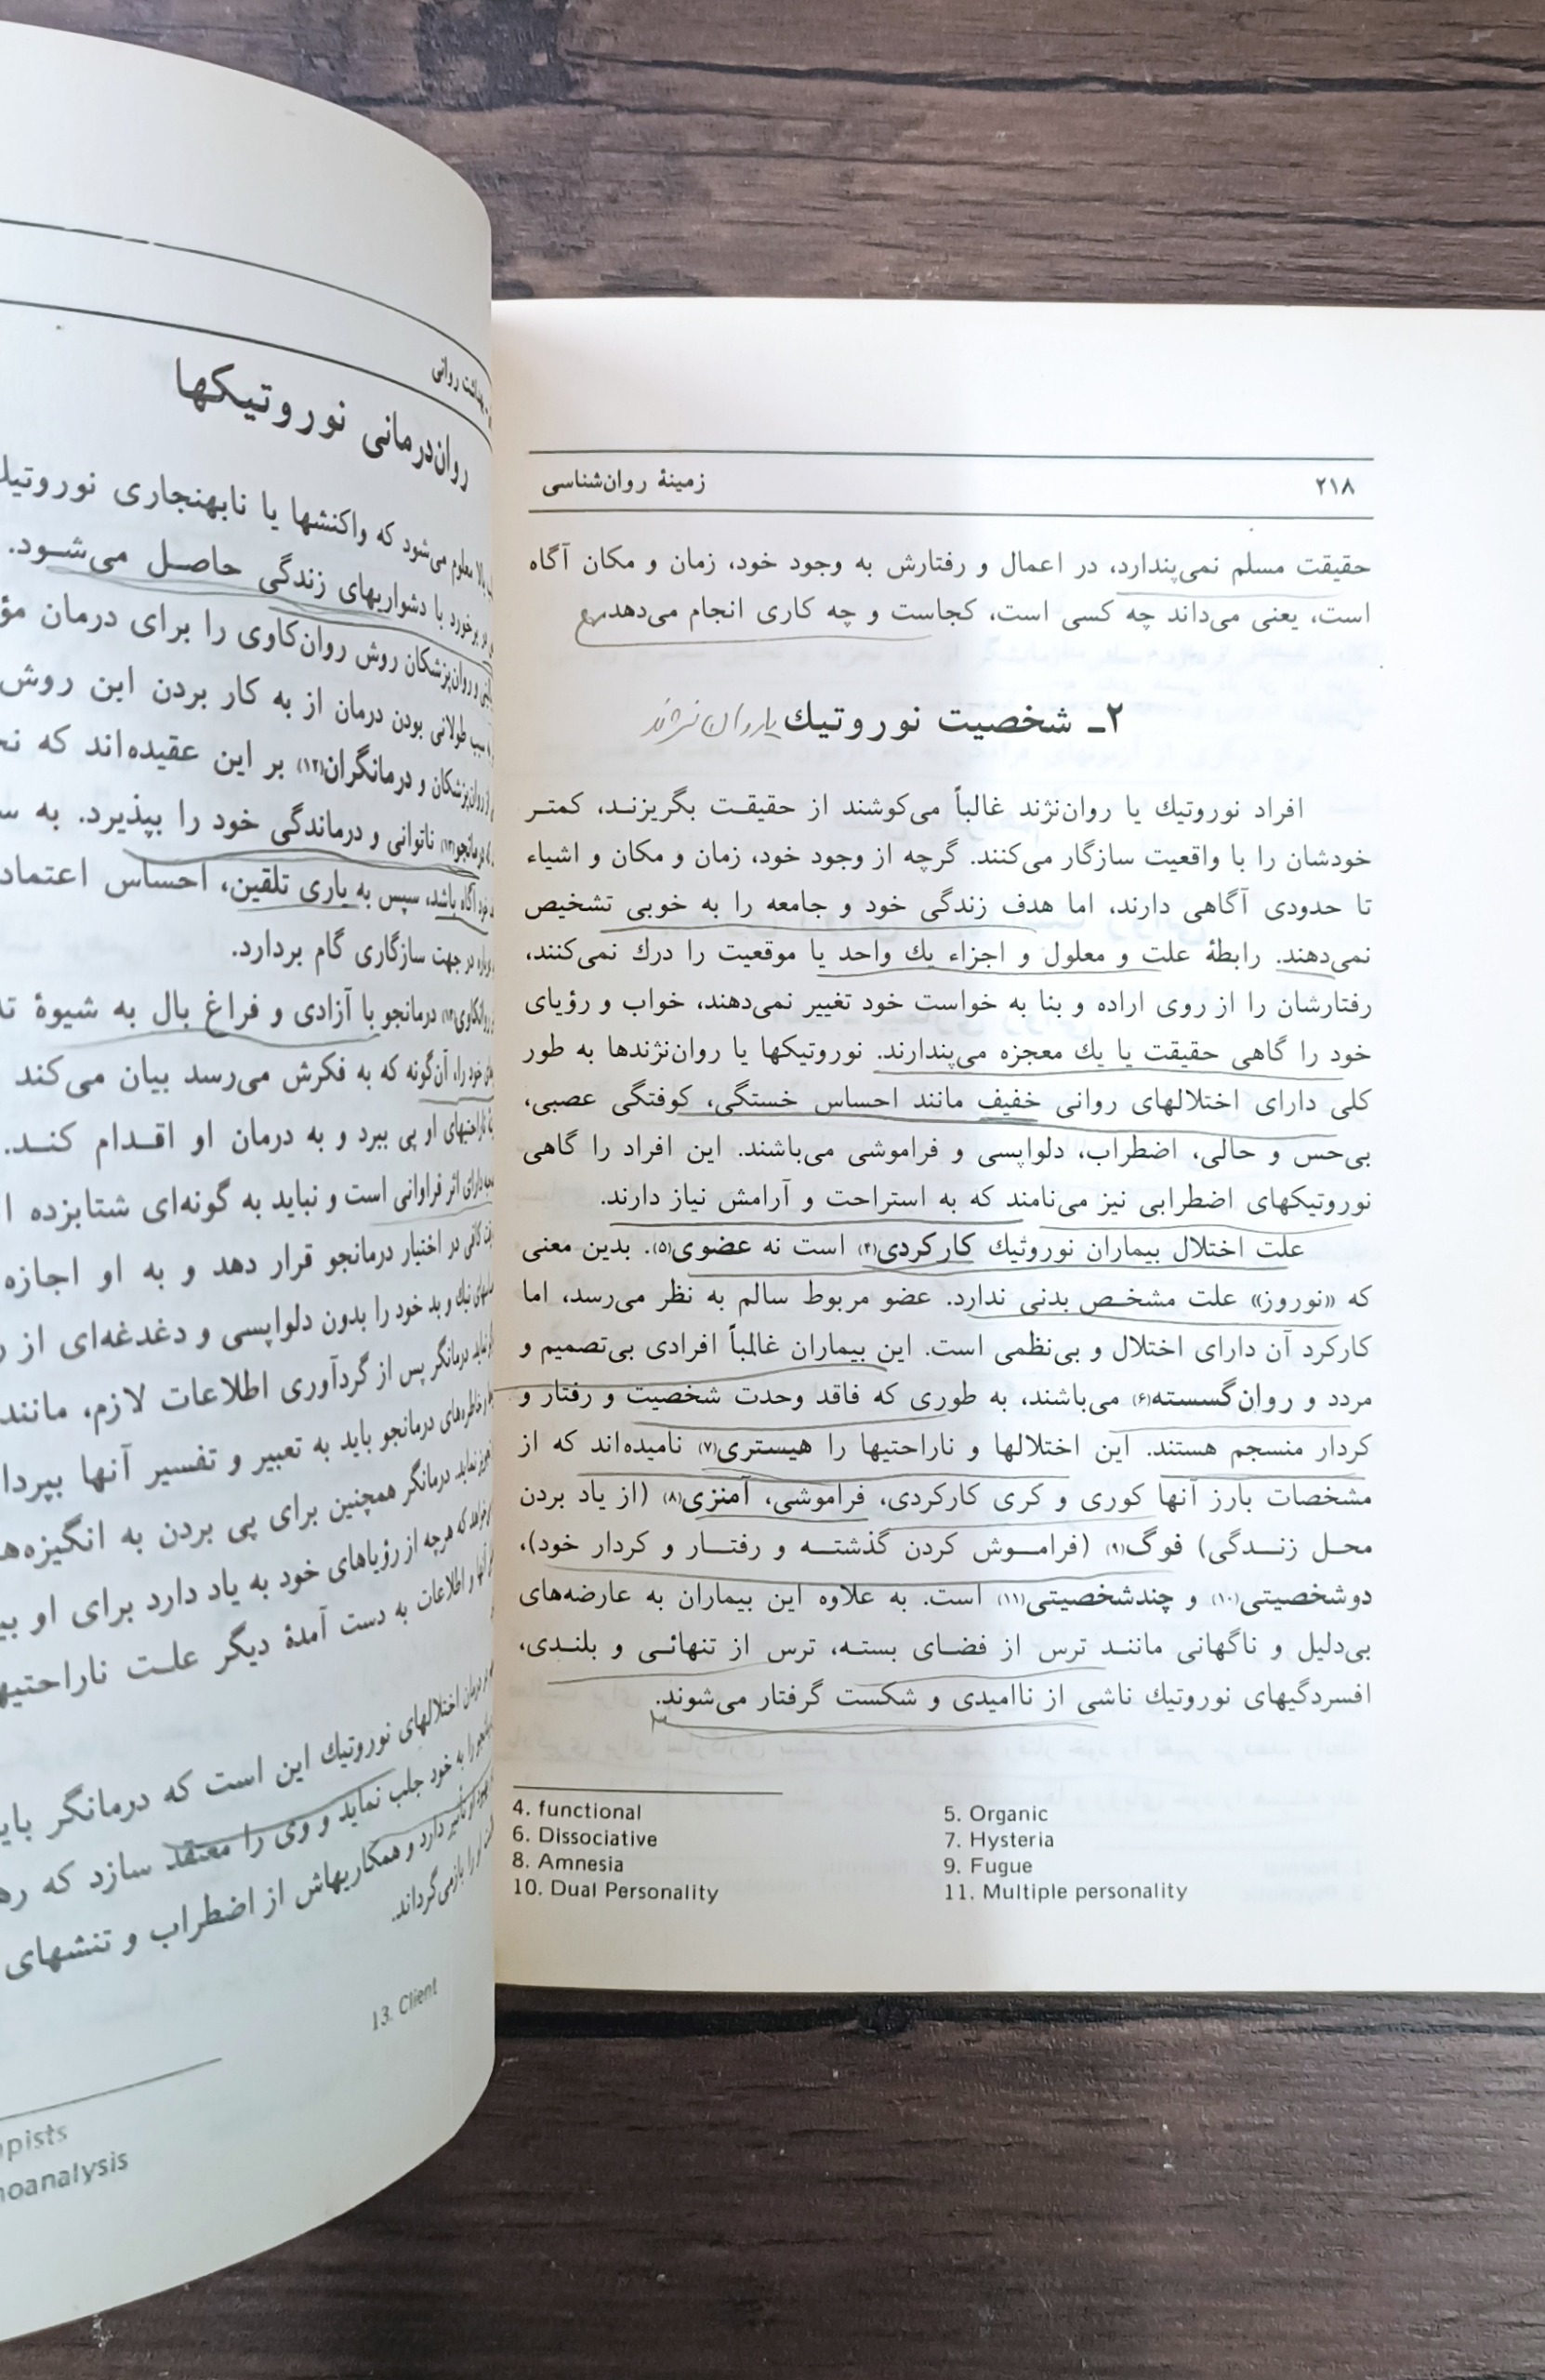 ۲۱۸
زمینهٔ روان‌شناسی
حقیقت مسلم نمی‌پندارد، در اعمال و رفتارش به وجود خود، زمان و مکان آگاه
است، یعنی می‌داند چه کسی است، کجاست و چه کاری انجام می‌دهد.
۲ـ شخصیت نوروتیك یا روان نژند
افراد نوروتیك یا روان‌نژند غالباً می‌کوشند از حقیقـت بگریزنـد، کمتـر
خودشان را با واقعیت سازگار می‌کنند. گرچه از وجود خود، زمان و مکان و اشیاء
تا حدودی آگاهی دارند، اما هدف زندگی خود و جامعه را به خوبی تشخیص
نمی‌دهند. رابطهٔ علت و معلول و اجزاء یك واحد یا موقعیت را درك نمی‌کنند،
رفتارشان را از روی اراده و بنا به خواست خود تغییر نمی‌دهند، خواب و رؤیای
خود را گاهی حقیقت یا یك معجزه می‌پندارند. نوروتیکها یا روان‌نژندها به طور
کلی دارای اختلالهای روانی خفیف مانند احساس خستگی، کوفتگی عصبی،
بی‌حس و حالی، اضطراب، دلواپسی و فراموشی می‌باشند. این افراد را گاهی
نوروتیکهای اضطرابی نیز می‌نامند که به استراحت و آرامش نیاز دارند.
علت اختلال بیماران نوروتیك کارکردی(۴) است نه عضوی(۵). بدین معنی
که «نوروز» علت مشخـص بدنی ندارد. عضو مربوط سالم به نظر می‌رسد، اما
کارکرد آن دارای اختلال و بی‌نظمی است. این بیماران غالمباً افرادی بی‌تصمیم و
مردد و روان‌گسسته(۶) می‌باشند، به طوری که فاقد وحدت شخصیت و رفتار و
کردار منسجم هستند. این اختلالها و ناراحتیها را هیستری(۷) نامیده‌اند که از
مشخصات بارز آنها کوری و کری کارکردی، فراموشی، آمنزی(۸) (از یاد بردن
محـل زنـدگی) فوگ(۹) (فرامـوش کردن گذشتـه و رفتـار و کردار خود)،
دوشخصیتی(۱۰) و چندشخصیتی(۱۱) است. به علاوه این بیماران به عارضه‌های
بی‌دلیل و ناگهانی ماننـد ترس از فضـای بستـه، ترس از تنهائـی و بلنـدی،
افسردگیهای نوروتیك ناشی از ناامیدی و شکست گرفتار می‌شوند.
4. functional
5. Organic
6. Dissociative
7. Hysteria
8. Amnesia
9. Fugue
10. Dual Personality
11. Multiple personality
بهداشت روانی
روان‌درمانی نوروتیکها
معلوم می‌شود که واکنشها یا نابهنجاری
برخورد با دشواریهای زندگی حاصـل می‌شـود.
و روان‌پزشکان روش روان‌کاوی را برای درمان
طولانی بودن درمان از به کار بردن این روش
روان‌پزشکان و درمانگران(۱۲) بر این عقیده‌اند که
ناتوانی و درماندگی خود را بپذیرد. به
آگاه باشد، سپس به یاری تلقین، احساس اعتماد
در جهت سازگاری گام بردارد.
درمانجو با آزادی و فراغ بال به شیوهٔ
خود را، آن‌گونه که به فکرش می‌رسد بیان می‌کند
ناراحتیهای او پی ببرد و به درمان او اقـدام کنـد.
دارای اثر فراوانی است و نباید به گونه‌ای شتابزده
کافی در اختیار درمانجو قرار دهد و به او اجازه
نیك و بد خود را بدون دلواپسی و دغدغه‌ای از
درمانگر پس از گردآوری اطلاعات لازم، مانند
خاطره‌های درمانجو باید به تعبیر و تفسیر آنها
درمانگر همچنین برای پی بردن به
که هرچه از رؤیاهای خود به یاد دارد برای او
آنها و اطلاعات به دست آمدهٔ دیگر علـت
درمان اختلالهای نوروتیك این است که درمانگر
را به خود جلب نماید و وی را معتقد سازد که
تأثیر دارد و همکاریهاش از اضطراب و تنشهای
را بازمی‌گرداند.
13. Client